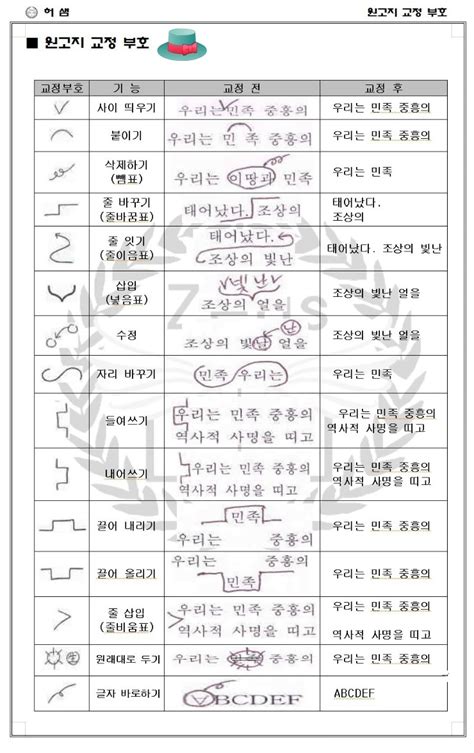 허 샘 원고지 교정 부호
■ 원고지 교정 부호
교정부호 기 능 교정 전 교정 후
사이 띄우기 우리는민족 중흥의 우리는 민족 중흥의
붙이기 우리는 민 족 중흥의 우리는 민족 중흥의
삭제하기
(뺌표) 우리는 이땅과 민족 우리는 민족
줄 바꾸기
(줄바꿈표) 태어났다. 조상의 태어났다.
조상의
줄 잇기
(줄이음표) 태어났다.
조상의 빛난 태어났다. 조상의 빛난
삽입
(넣음표) 빛난
조상의 얼을 조상의 빛난 얼을
수정 난
조상의 빛난 얼을 조상의 빛난 얼을
자리 바꾸기 민족 우리는 우리는 민족
들여쓰기 우리는 민족 중흥의
역사적 사명을 띠고 우리는 민족 중흥의
역사적 사명을 띠고
내어쓰기 우리는 민족 중흥의
역사적 사명을 띠고 우리는 민족 중흥의
역사적 사명을 띠고
끌어 내리기 민족
우리는 중흥의 우리는 민족 중흥의
끌어 올리기 우리는 중흥의
민족 우리는 민족 중흥의
줄 삽입
(줄비움표) 우리는 민족 중흥의
역사적 사명을 띠고 우리는 민족 중흥의
역사적 사명을 띠고
생 원래대로 두기 우리는 민족 중흥의 우리는 민족 중흥의
글자 바로하기 ABCDEF ABCDEF